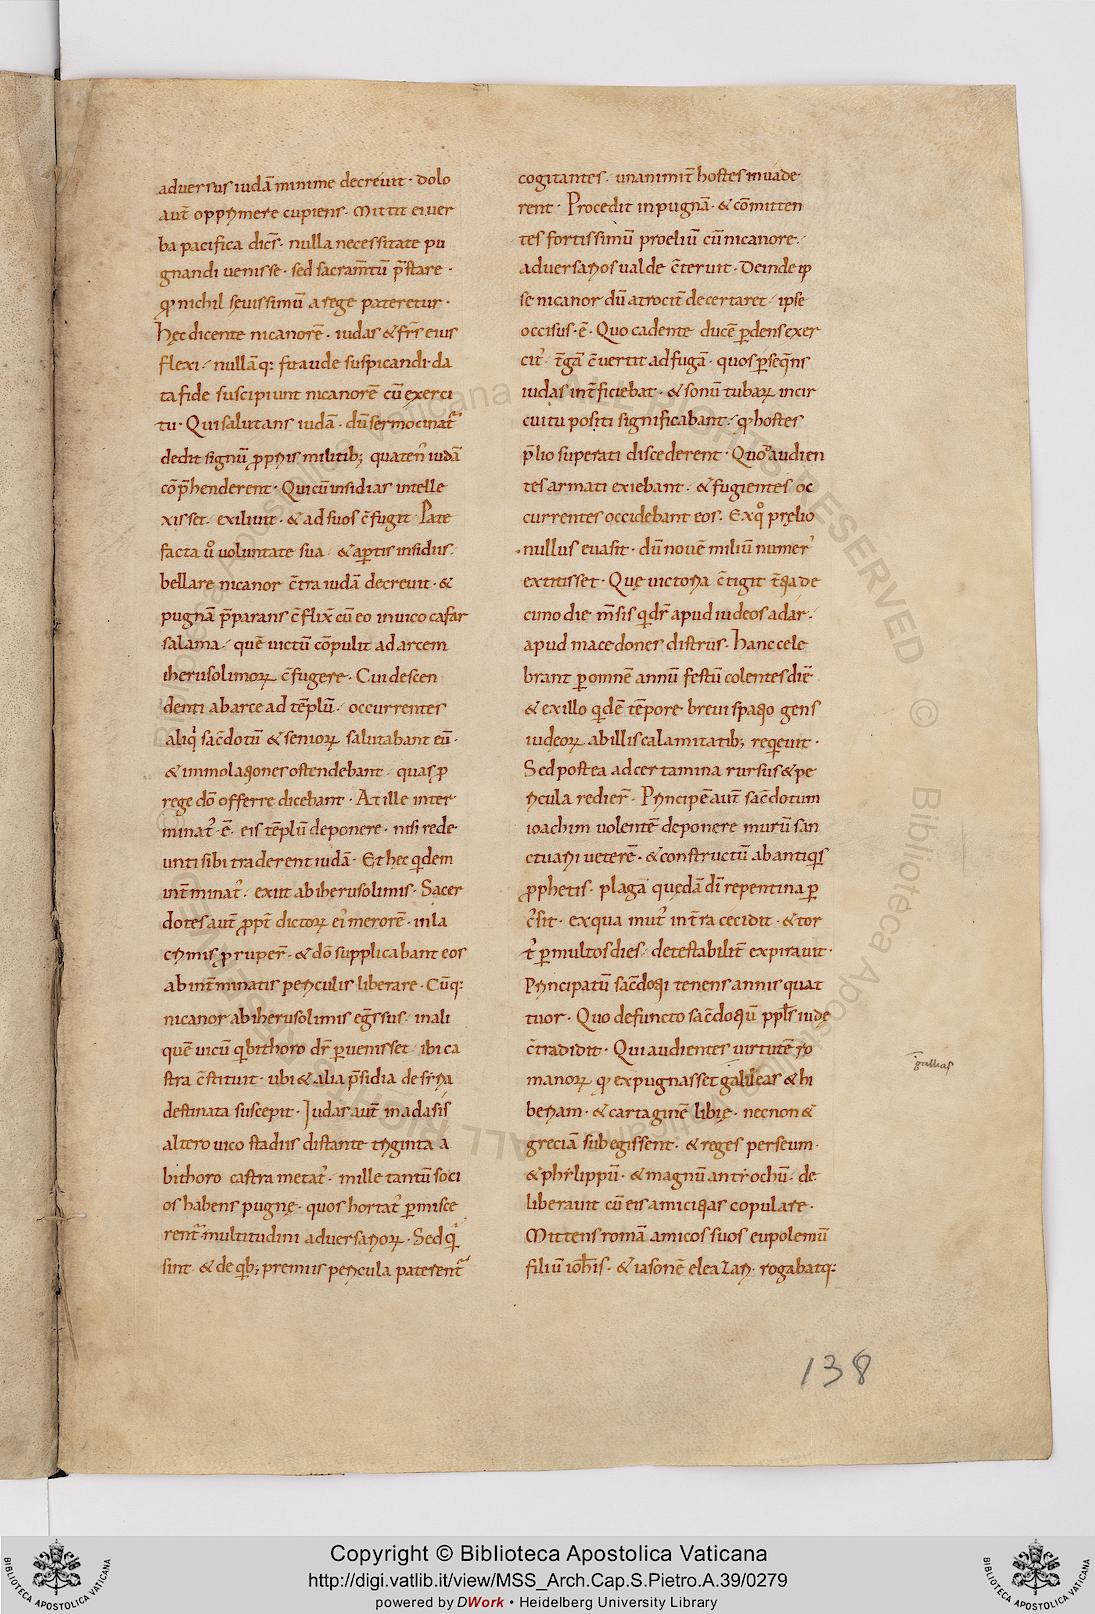 adversus iudā minime decrevit· dolo
aut̄ opprimere cupiens· Mittit ei ver
ba pacifica dicēs· nulla necessitate pu
gnandi venisse· sed sacram̄tū p̄stare·
qđ nichil sevissimū a rege pateretur·
hęc dicente nicanorē· iudas & fr̄s eius
flexi· nullāq; fraude suspicandi· da
ta fide suscipiunt nicanorē cū exerci
tu· Qui salutans iudā· dū sermocinat᷑
dedit signū ꝓpriis militib; quaten᷒ iudā
cōp̄henderent· Qui cū insidias intelle
xisset· exiliuit· & ad suos c̄fugit· Pate
facta ů voluntate sua· & aꝑtis insidiis·
bellare nicanor c̄tra iudā decrevit· &
pugnā p̄parans c̄flix̄ cū eo in vico cafar
salama· quē victū cōpulit ad arcem
iherusolimoꝝ c̄fugere· Cui descen
denti ab arce ad tēplū· occurrentes
aliq sac̄dotū & senioꝝ salutabant eū·
& immolationes ostendebant· quas ꝓ
rege dō offerre dicebant· At ille inter
minat᷒· ē· eis tēplū deponere· nisi rede
unti sibi traderent iudā· Et hęc qdem
int̄minat᷒· exiit ab iherusolimis· Sacer
dotes aut̄ ꝓpt̄ dictoꝝ ei᷒ merorē· in la
crimis ꝓruper̄· & dō supplicabant eos
ab int̄minatis periculis liberare· Cūq;
nicanor ab iherusolimis eḡssus· in ali
quē vicū q bithoro dr̄ ꝑvenisset· ibi ca
stra c̄stituit· ubi & alia p̄sidia de siria
destinata suscepit· Iudas aut̄ in adasis
altero vico stadiis distante triginta a
bithoro castra metat᷒· mille tantū soci
os habens pugnę· quos hortat᷒ ꝑmisce
rent᷑ multitudini adversarioꝝ· Sed q
sint· & de qb; premiis pericula paterent᷑
cogitantes· unanimit̄ hostes invade
rent· Procedit in pugnā· & cōmitten
tes fortissimū proeliū cū nicanore·
adversarios valde c̄teruit· Deinde ip
se nicanor dū atrocit̄ decertaret· ipse
occisus· ē· Quo cadente ducē ꝑdens exer
cit᷒· t̄gā c̄vertit ad fugā· quos ꝑseq̄ns
iudas int̄ficiebat· & sonū tubaꝝ in cir
cuitu positi significabant· qđ hostes
p̄lio superati discederent· Quo audien
tes armati exiebant· & fugientes oc
currentes occidebant eos· Ex qo pręlio
nullus evasit· dū novē miliū numer᷒
extitisset· Quę victoria c̄tigit t̄tia de
cimo die m̄sis qdr̄ apud iudeos adar·
apud macedones distrus· hanc cele
brant ꝑ omnē annū festū colentes diē·
& ex illo qdē tēpore brevi spatio gens
iudeoꝝ ab illis calamitatib; reqevit·
Sed postea ad certamina rursus & pe
ricula redier̄· Principē aut̄ sac̄dotum
ioachim volentē deponere murū san
ctuarii veterē· & constructū ab antiqis
ꝓphetis· plaga quędā dī repentina ꝑ
c̄sit· ex qua mut᷒ in t̄ra cecidit· & tor
t᷒ ꝑ multos dies· detestabilit̄ expiravit·
Principatū sac̄dotii tenens annis quat
tuor· Quo defuncto sac̄dotiū ppl̄s iudę
c̄tradidit· Qui audientes virtutē ro
manoꝝ qđ expugnasset galileas & hi
beriam· & cartaginē libię· necnon &
greciā subegissent· & reges perseum·
& phylippū· & magnū antiochū· de
liberavit cū eis amicitias copulare·
Mittens romā amicos suos eupolemū
filiū ioh̄is· & iasonē eleazari· rogabatq;
gallias
138
Copyright © Biblioteca Apostolica Vaticana
http://digi.vatlib.it/view/MSS_Arch.Cap.S.Pietro.A.39/0279
powered by DWork • Heidelberg University Library